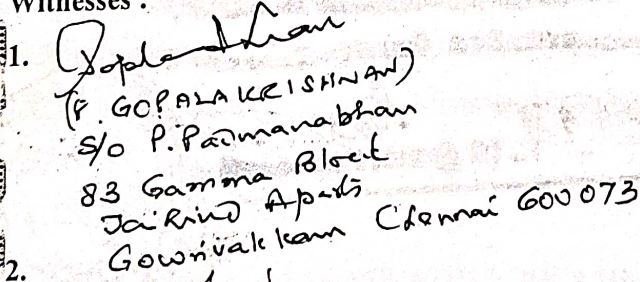 Witnesses :
1. Gopalakrishnan
(P. GOPALAKRISHNAN)
S/o P. Padmanabhan
83 Gamma Block
Jai Rind Aparts
Gowrivakkam Chennai 600 073
2.